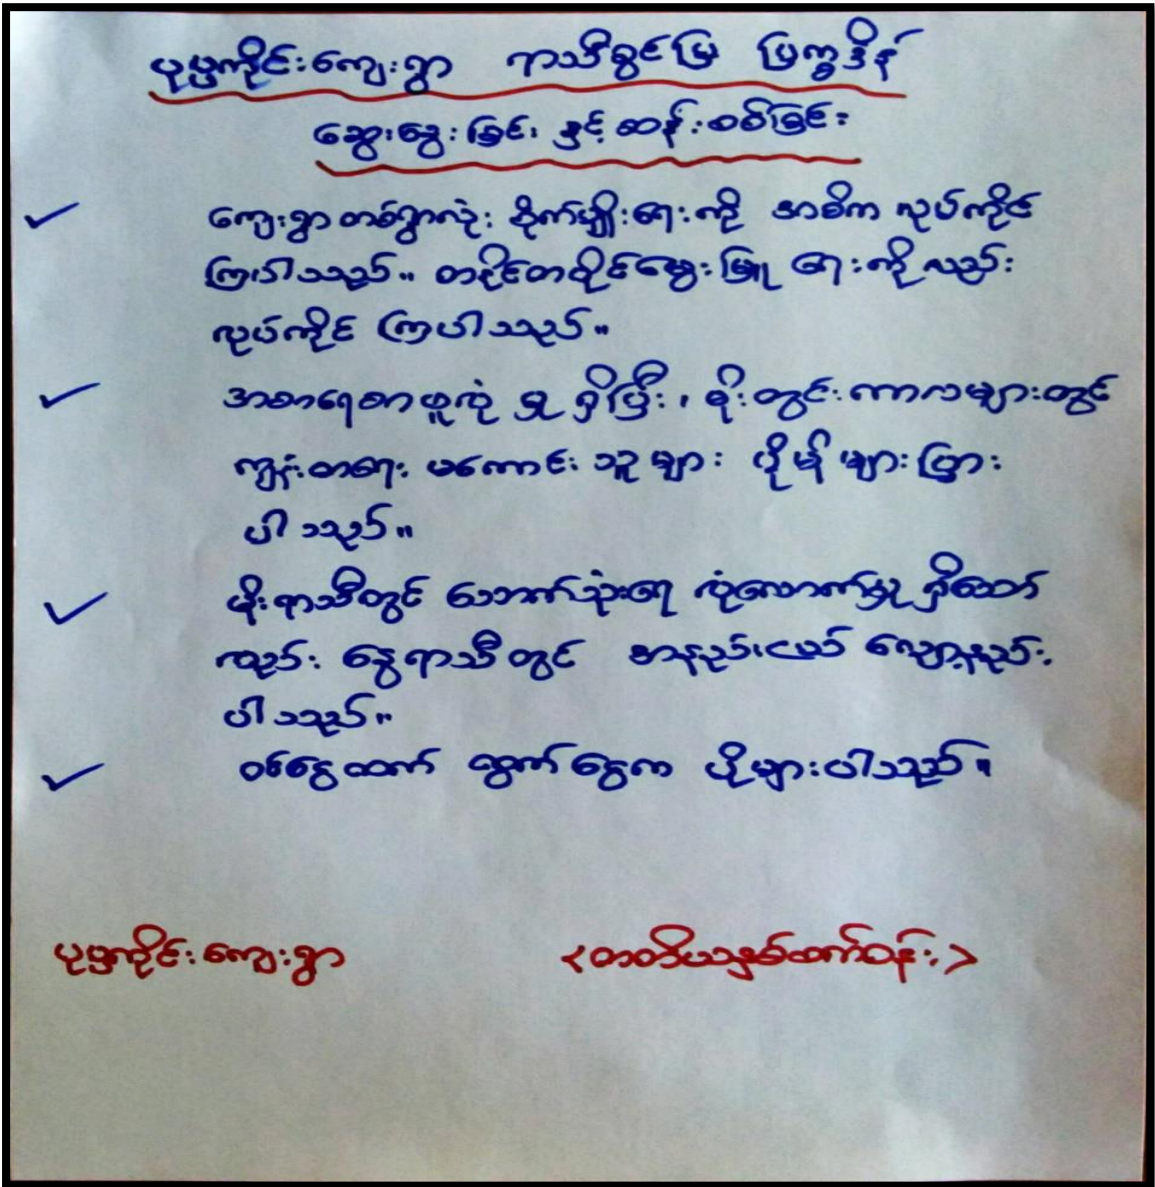 ပုပ္ပကိုင်းကျေးရွာ ရာသီခွင်ပြ ပြက္ခဒိန်
ဆွေးနွေးခြင်း နှင့် ဆန်းစစ်ခြင်း
ကျေးရွာတစ်ရွာလုံး စိုက်ပျိုးရေးကို အဓိက လုပ်ကိုင်
ကြပါသည်။ တနိုင်တပိုင်မွေးမြူ ရေးကိုလည်း
လုပ်ကိုင် ကြပါသည်။
အစာရေစာဖူလုံ မှု ရှိပြီး၊ မိုးတွင်းကာလများတွင်
ကျန်းမာရေး မကောင်းသူများ ပိုမိုများပြား
ပါသည်။
မိုးရာသီတွင် သောက်သုံးရေ လုံလောက်မှု ရှိသော်
လည်း နွေရာသီတွင် အနည်းငယ် လျော့နည်း
ပါသည်။
ဝင်ငွေထက် ထွက်ငွေက ပိုများပါသည်။
ပုပ္ပကိုင်းကျေးရွာ <တတိယနှစ်ထက်ဝန်း>